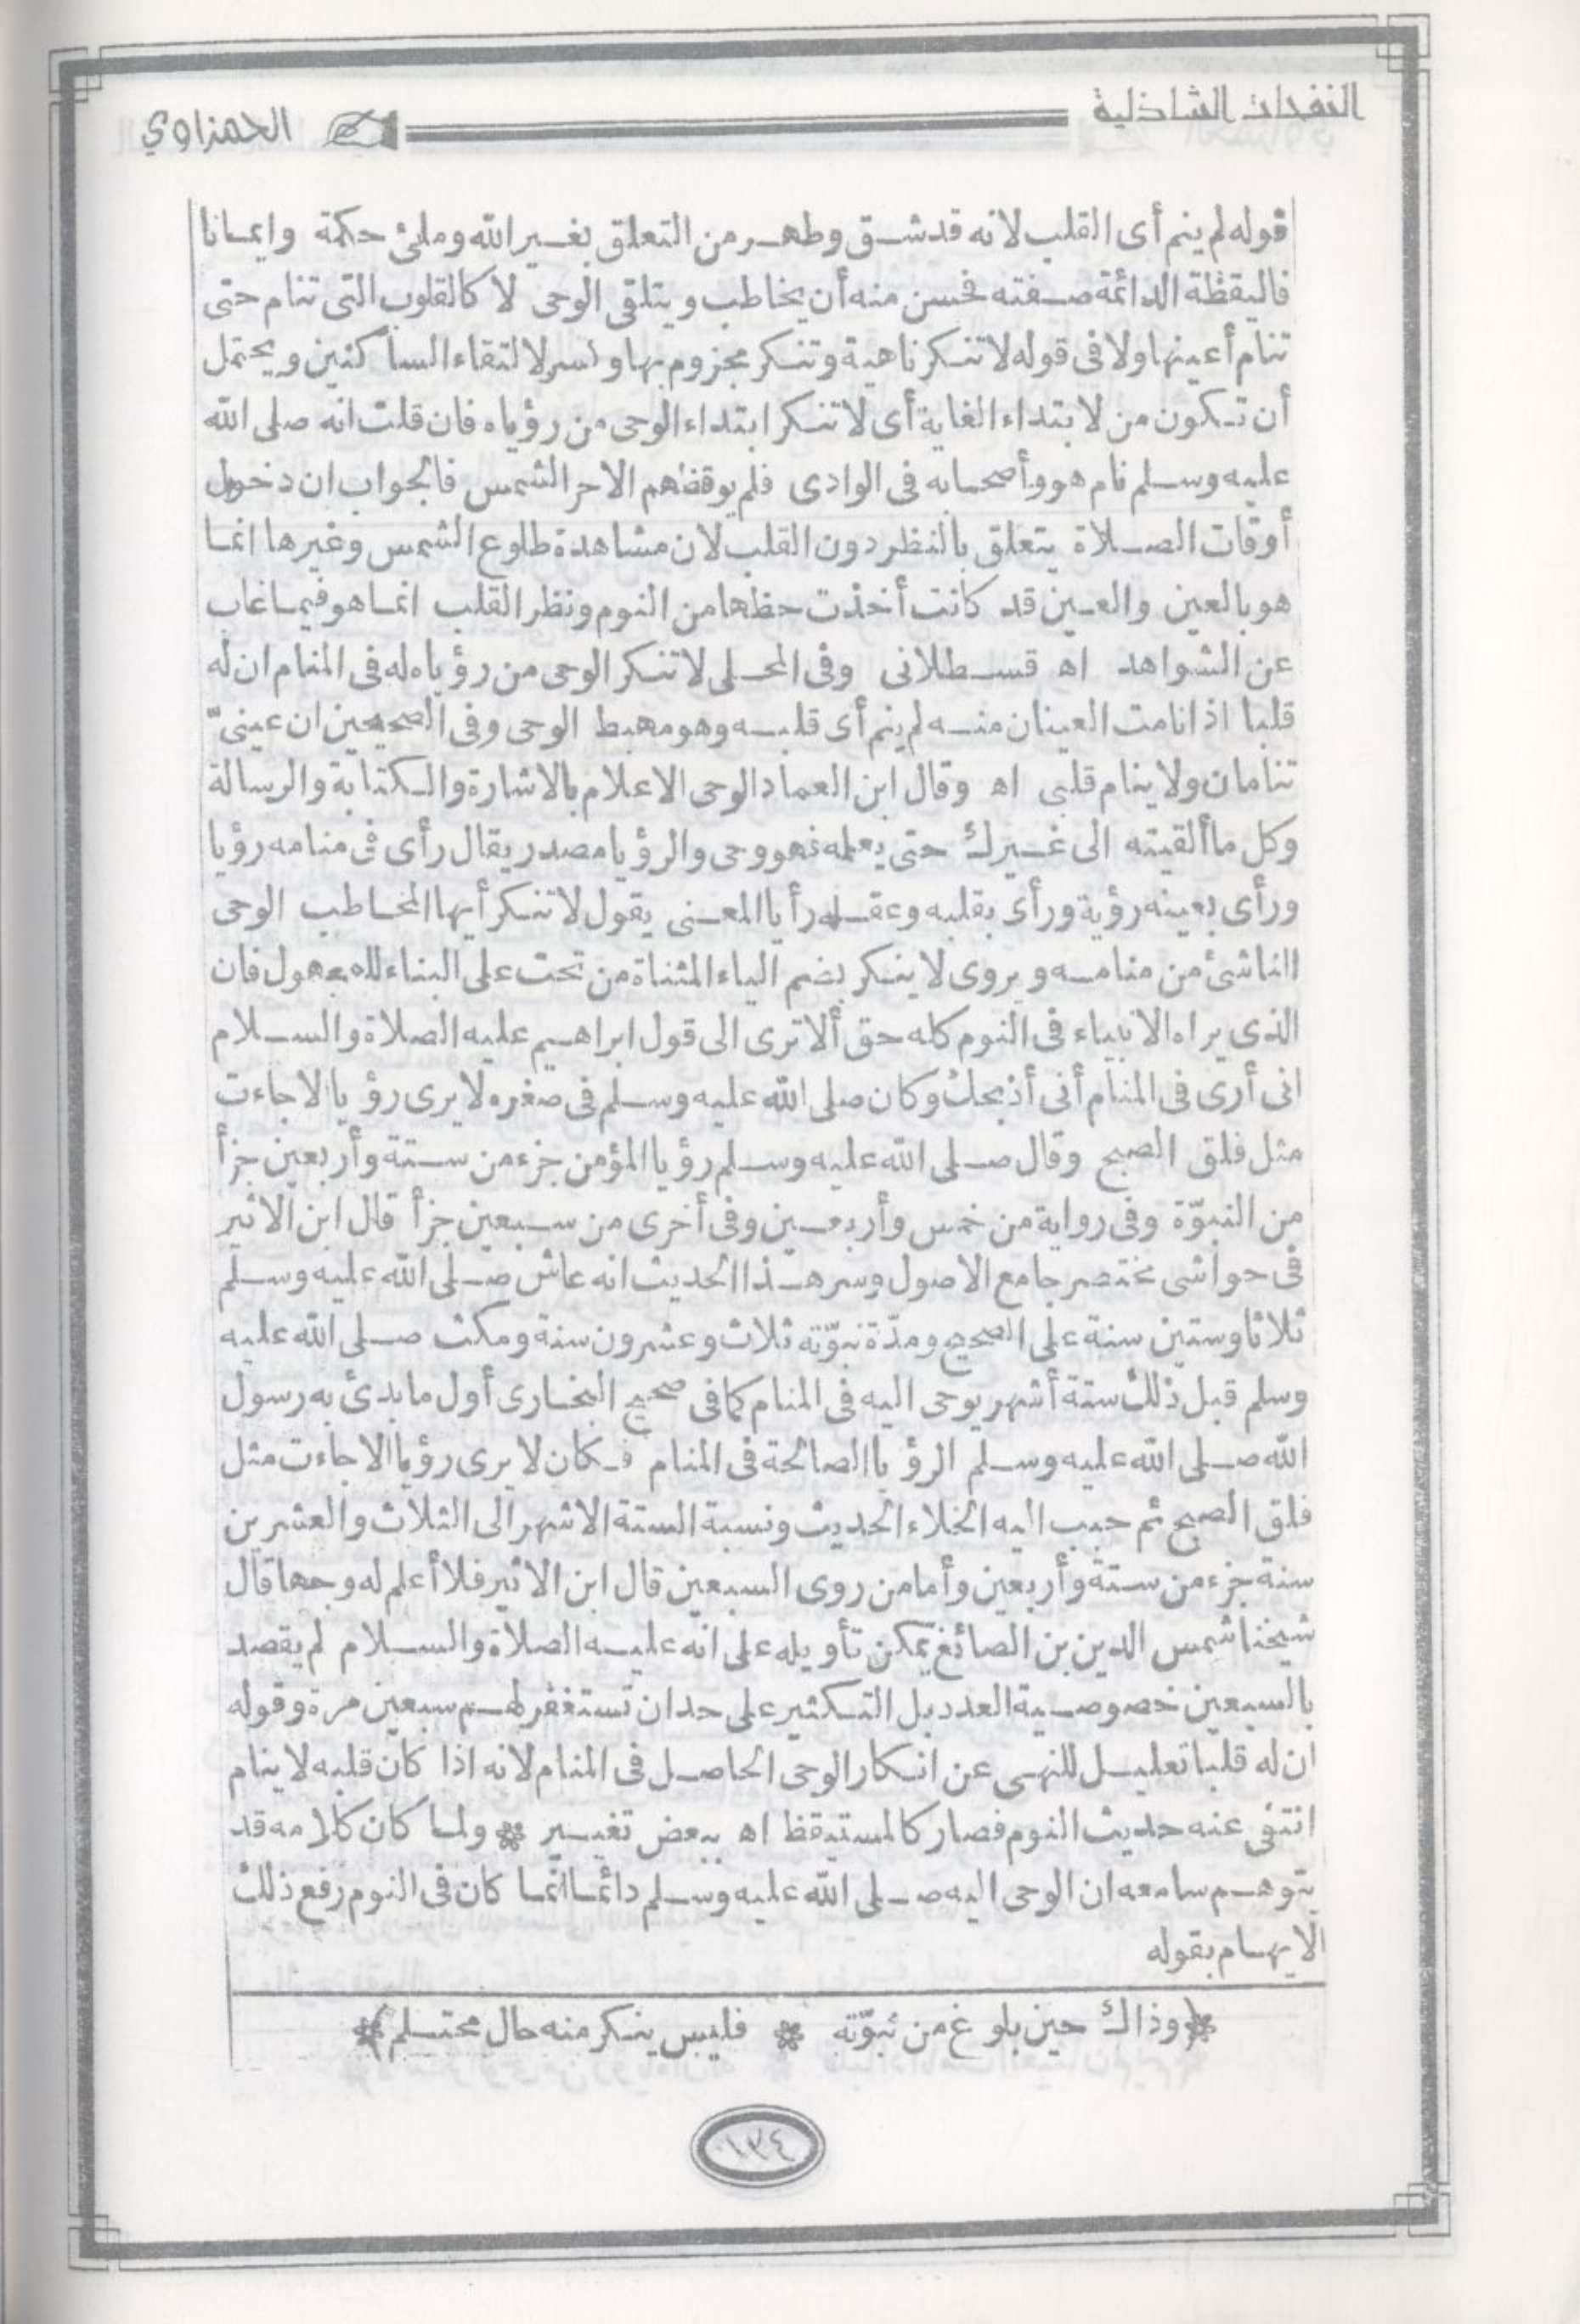 النفحات الشاذلية
الحمزاوي
قوله لم ينم أى القلب لانه قد شق وطهر من التعلق بغير الله وملئ حكمة وايمانا
فاليقظة الدائمة صفته فحسن منه أن يخاطب ويتلقى الوحى لا كالقلوب التى تنام حتى
تنام أعينها ولا فى قوله لا تنكر ناهية وتنكر مجزوم بها وكسر لالتقاء الساكنين ويحتمل
أن تكون من لابتداء الغاية أى لا تنكر ابتداء الوحى من رؤياه فان قلت انه صلى الله
عليه وسلم نام هو وأصحابه فى الوادى فلم يوقظهم الا حر الشمس فالجواب ان دخول
أوقات الصلاة يتعلق بالنظر دون القلب لان مشاهدة طلوع الشمس وغيرها انما
هو بالعين والعين قد كانت أخذت حظها من النوم ونظر القلب انما هو فيما غاب
عن الشواهد اه قسطلانى وفى المحلى لا تنكر الوحى من رؤياه له فى المنام ان له
قلبا اذا نامت العينان منه لم ينم أى قلبه وهو مهبط الوحى وفى الصحيحين ان عينىّ
تنامان ولا ينام قلبى اه وقال ابن العماد الوحى الاعلام بالاشارة والكتابة والرسالة
وكل ما ألقيته الى غيرك حتى يعلمه فهو وحى والرؤيا مصدر يقال رأى فى منامه رؤيا
ورأى بعينه رؤية ورأى بقلبه وعقله رأيا المعنى يقول لا تنكر أيها المخاطب الوحى
الناشئ من منامه ويروى لا ينكر بضم الياء المثناة من تحت على البناء للمجهول فان
الذى يراه الانبياء فى النوم كله حق ألا ترى الى قول ابراهيم عليه الصلاة والسلام
انى أرى فى المنام أنى أذبحك وكان صلى الله عليه وسلم فى صغره لا يرى رؤيا الا جاءت
مثل فلق الصبح وقال صلى الله عليه وسلم رؤيا المؤمن جزء من ستة وأربعين جزأ
من النبوّة وفى رواية من خمس وأربعين وفى أخرى من سبعين جزأ قال ابن الاثير
فى حواشى مختصر جامع الاصول وسر هذا الحديث انه عاش صلى الله عليه وسلم
ثلاثا وستين سنة على الصحيح ومدّة نبوّته ثلاث وعشرون سنة ومكث صلى الله عليه
وسلم قبل ذلك ستة أشهر يوحى اليه فى المنام كما فى صحيح البخارى أول ما بدئ به رسول
الله صلى الله عليه وسلم الرؤيا الصالحة فى المنام فكان لا يرى رؤيا الا جاءت مثل
فلق الصبح ثم حبب اليه الخلاء الحديث ونسبة الستة الاشهر الى الثلاث والعشرين
سنة جزء من ستة وأربعين وأما من روى السبعين قال ابن الاثير فلا أعلم له وجها قال
شيخنا شمس الدين بن الصائغ يمكن تأويله على انه عليه الصلاة والسلام لم يقصد
بالسبعين خصوصية العدد بل التكثير على حد ان تستغفر لهم سبعين مرة وقوله
ان له قلبا تعليل للنهى عن انكار الوحى الحاصل فى المنام لانه اذا كان قلبه لا ينام
انتفى عنه حديث النوم فصار كالمستيقظ اه ببعض تغيير * ولما كان كلامه قد
يتوهم سامعه ان الوحى اليه صلى الله عليه وسلم دائما انما كان فى النوم رفع ذلك
الايهام بقوله
*(وذاك حين بلوغ من نبوّته * فليس ينكر منه حال محتلم)*
١٣٤